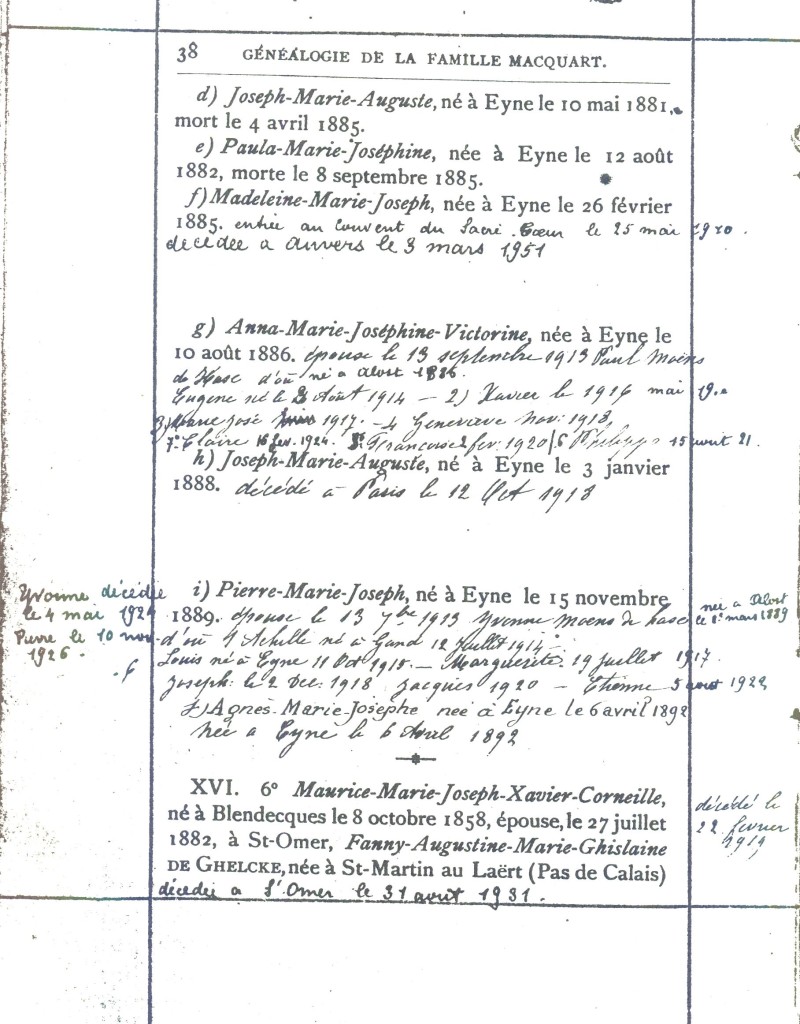 38 GÉNÉALOGIE DE LA FAMILLE MACQUART.
d) Joseph-Marie-Auguste, né à Eyne le 10 mai 1881,
mort le 4 avril 1885.
e) Paula-Marie-Joséphine, née à Eyne le 12 août
1882, morte le 8 septembre 1885.
f) Madeleine-Marie-Joseph, née à Eyne le 26 février
1885. entrée au couvent du Sacré Cœur le 25 mai 1910.
décédée à Anvers le 3 mars 1951
g) Anna-Marie-Joséphine-Victorine, née à Eyne le
10 août 1886. épouse le 13 septembre 1913 Paul Moens
de Hase d'où né à Alost 1886.
Eugène né le août 1914 — 2) Xavier le 1916 mai 19.
3) Marie José 1917. — 4 Geneviève Nov: 1918
7° Claire 16 fev. 1924. 5° Françoise 2 fev: 1920 / 6 Philippe 15 aout 21.
h) Joseph-Marie-Auguste, né à Eyne le 3 janvier
1888. décédé à Paris le 12 Oct 1918
i) Pierre-Marie-Joseph, né à Eyne le 15 novembre
1889. épouse le 13 7bre 1913 Yvonne Moens de hase née a Alost le 1r mars 1889
d'où 1 Achille né à Gand 12 juillet 1914 —
Louis né à Eyne 11 Oct 1915. — Marguerite. 19 juillet 1917.
Joseph: le 2 Dec: 1918 Jacques 1920 — Étienne 5 aout 1922
Yvonne décédée
le 4 mai 1924
Pierre le 10 nov.
1926.
j) Agnès-Marie-Josephe née à Eyne le 6 avril 1892
Née a Eyne le 6 Avril 1892
XVI. 6° Maurice-Marie-Joseph-Xavier-Corneille,
né à Blendecques le 8 octobre 1858, épouse, le 27 juillet
1882, à St-Omer, Fanny-Augustine-Marie-Ghislaine
DE GHELCKE, née à St-Martin au Laërt (Pas de Calais)
décédée a St Omer le 31 aout 1931.
décédé le
22 fevrier
1919